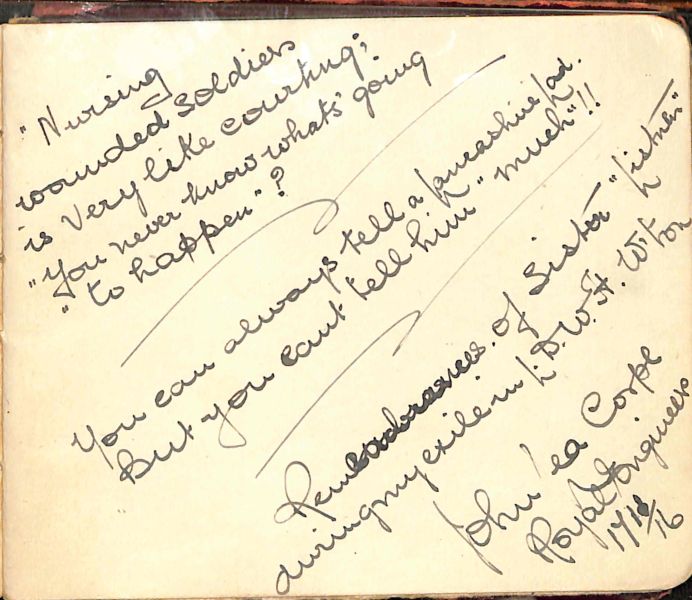 "Nursing
wounded soldiers
is very like courting;
"You never know whats' going
"to happen"?
You can always tell a Lancashire lad.
But you cant tell him "much"!!
Remembrances of Sister "Listner"
during my exile in L.D.W.H. Wton
John Corpe
Royal Engineers
17/10/16